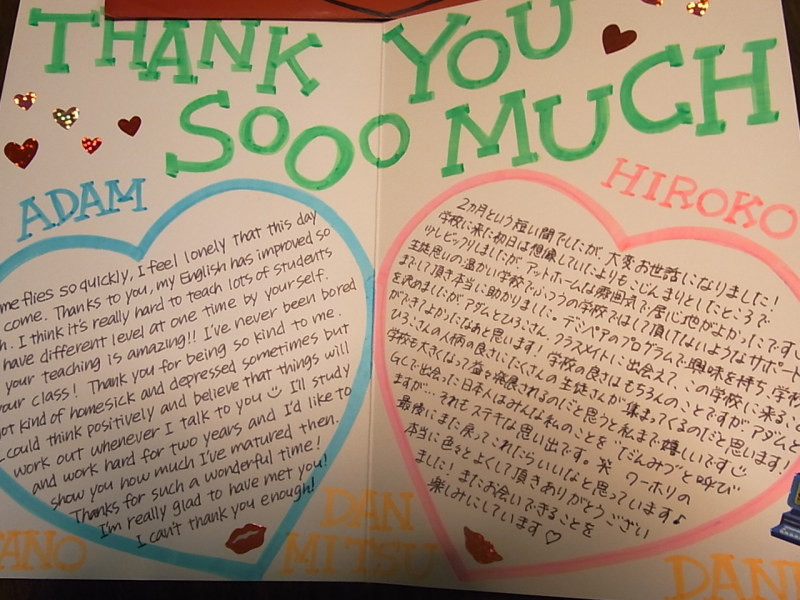 THANK YOU
SoOOo MUCH
ADAM
me flies so quickly, I feel lonely that this day
come. Thanks to you, my English has improved so
h. I think it's really hard to teach lots of students
have different level at one time by yourself.
your teaching is amazing!! I've never been bored
our class! Thank you for being so kind to me.
got kind of homesick and depressed sometimes but
I could think positively and believe that things will
work out whenever I talk to you I'll study
and work hard for two years and I'd like to
show you how much I've matured then.
Thanks for such a wonderful time!
I'm really glad to have met you!
I can't thank you enough!
HIROKO
2カ月という短い間でしたが、大変お世話になりました!
学校に来た初日は想像していたよりも、こじんまりとしたところで
少しビックリしましたが、アットホームな雰囲気で居心地がよかったです
生徒思いの温かい学校でふつうの学校ではして頂けないようなサポート
までして頂き本当に助かりました。デミペアのプログラムで興味を持ち、学校
を決めましたが、アダムとひろさん、クラスメイトに出会えて、この学校に来ること
ができてよかったなあと思います!学校の良さはもちろんのことですがアダムと
ひろさんの人柄の良さにたくさんの生徒さんが集まってくるのだと思います!
学校も大きくなって益々発展されるのだと思うと私まで嬉しいです
GCで出会った日本人はみんな私のことを、だんみつ"と呼び
ますが、それもステキな思い出です。笑 ワーホリの
最後にまた戻ってこれたらいいなと思っています♪
本当に色々とよくして頂きありがとうござい
ました!またお会いできることを
楽しみにしています♡
ANO
DAN
MITSU
DAN